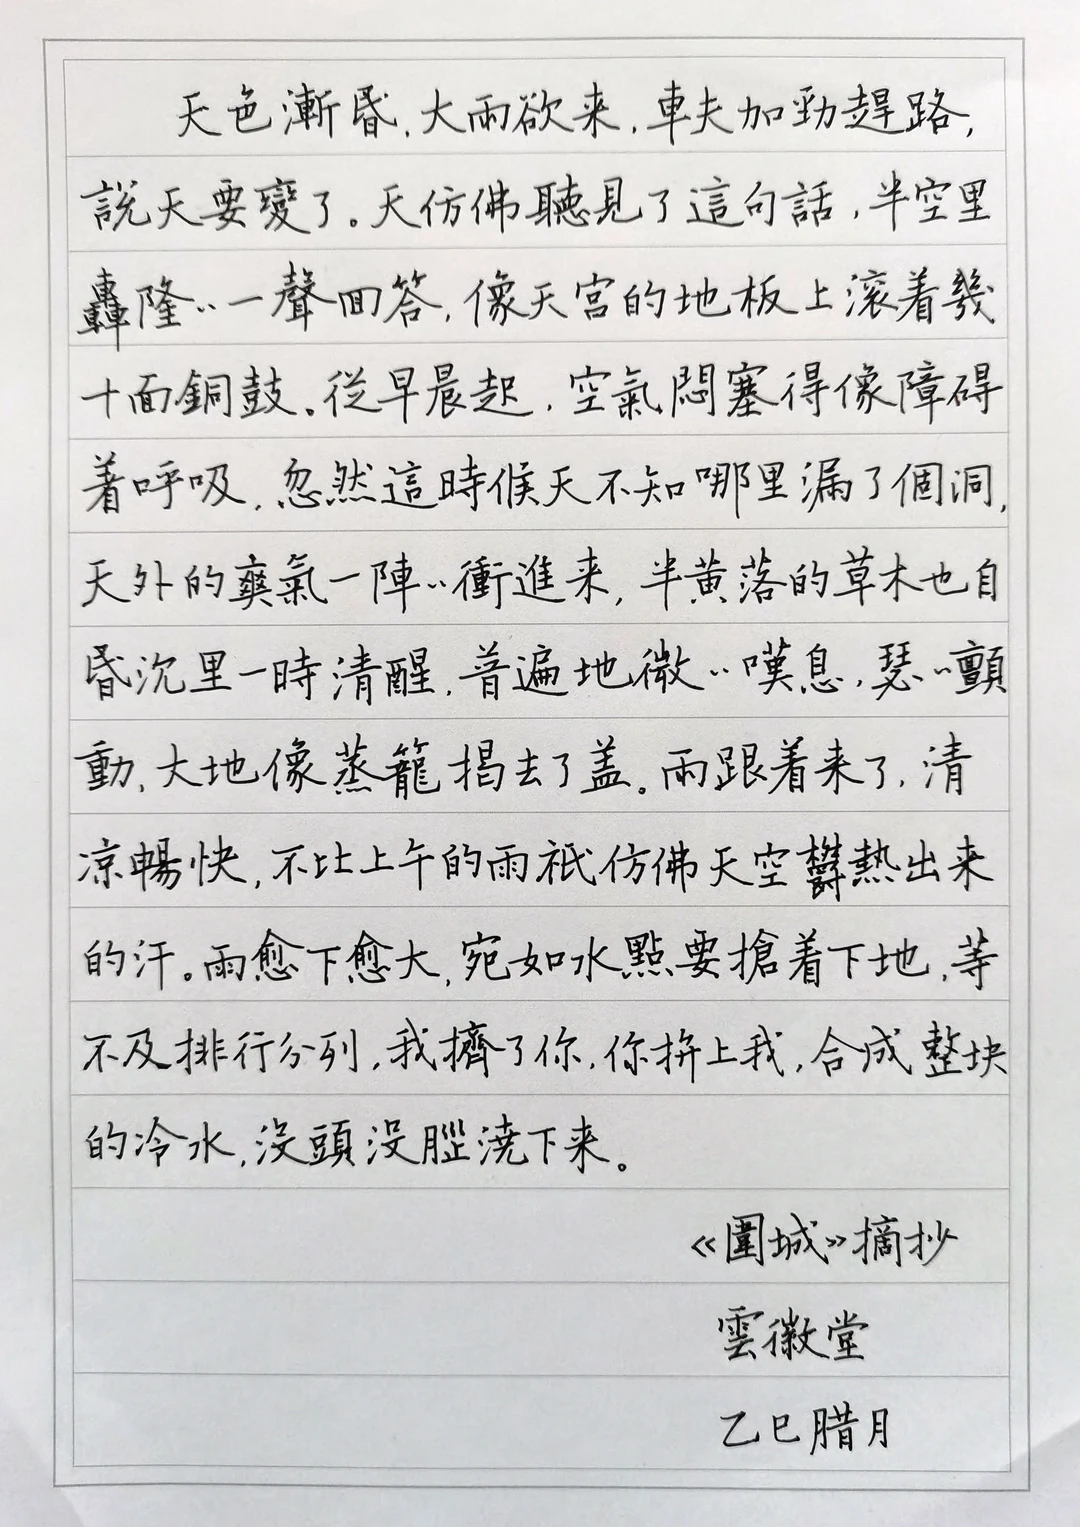 天色漸昏，大雨欲来，車夫加勁趕路，
說天要變了。天仿佛聽見了這句話，半空里
轟隆〻一聲回答，像天宮的地板上滚着幾
十面銅鼓。從早晨起，空氣悶塞得像障碍
着呼吸，忽然這時候天不知哪里漏了個洞，
天外的爽氣一陣〻衝進来，半黄落的草木也自
昏沉里一時清醒，普遍地微〻嘆息，瑟〻顫
動，大地像蒸籠揭去了盖。雨跟着来了，清
凉暢快，不比上午的雨祇仿佛天空鬱熱出来
的汗。雨愈下愈大，宛如水點要搶着下地，等
不及排行分列，我擠了你，你拚上我，合成整块
的冷水，没頭没腦澆下来。
《圍城》摘抄
雲徽堂
乙巳腊月